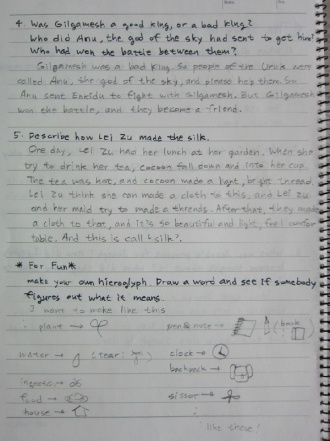 4. Was Gilgamesh a good king, or a bad king?
Who did Anu, the god of the sky had sent to get him?
Who had won the battle between them?
Gilgamesh was a bad king. So people of the Uruk went
called Anu, the god of the sky, and please help them. So
Anu sent Enkidu to fight with Gilgamesh. But Gilgamesh
won the battle, and they become a friend.
5. Describe how Lei Zu made the silk.
One day, Lei Zu had her lunch at her garden. When she
try to drink her tea, cocoon fall down and into her cup.
The tea was hot, and cocoon made a light, bright thread.
Lei Zu think she can made a cloth to this, and Lei Zu
and her maid try to made a threads. After that, they made
a cloth to that, and it's so beautiful and light, feel comfor
table. And this is call "silk".
* For Fun*
make your own hieroglyph. Draw a word and see if somebody
figures out what it means.
I want to make like this
plant → pen & note → (book
water → (tear: ) clock →
backpack →
food → sister →
house →
like these!